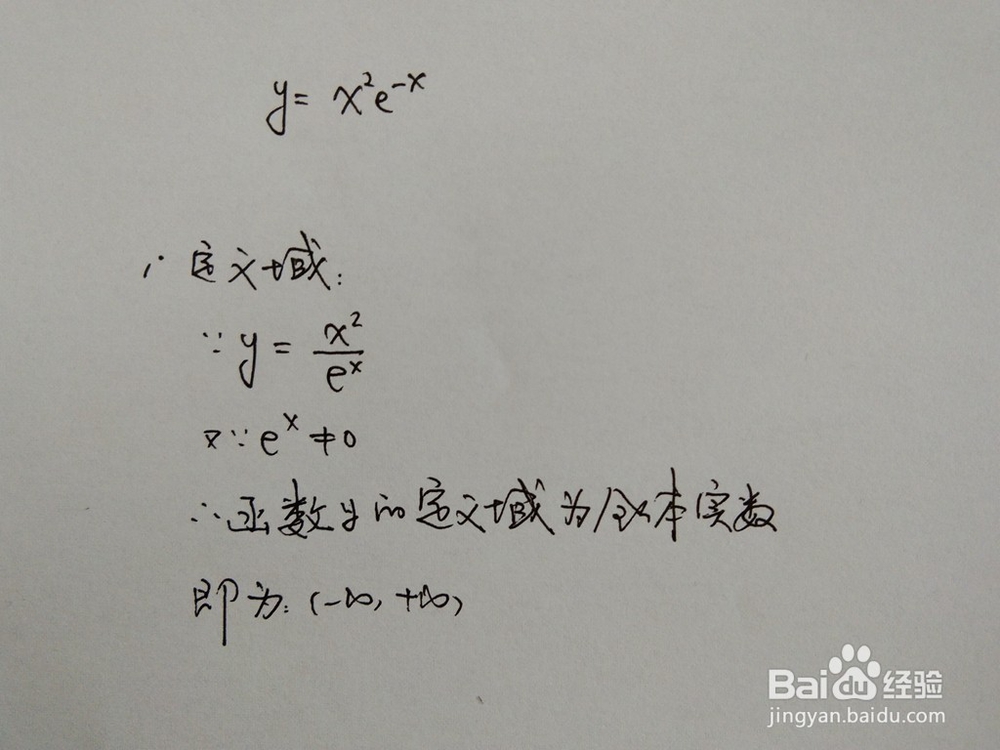 y = x²e⁻ˣ
1. 定义域:
∵ y = x²/eˣ
又∵ eˣ ≠ 0
∴函数y的定义域为全体实数
即为:(-∞, +∞)
Baidu经验
jingyan.baidu.com